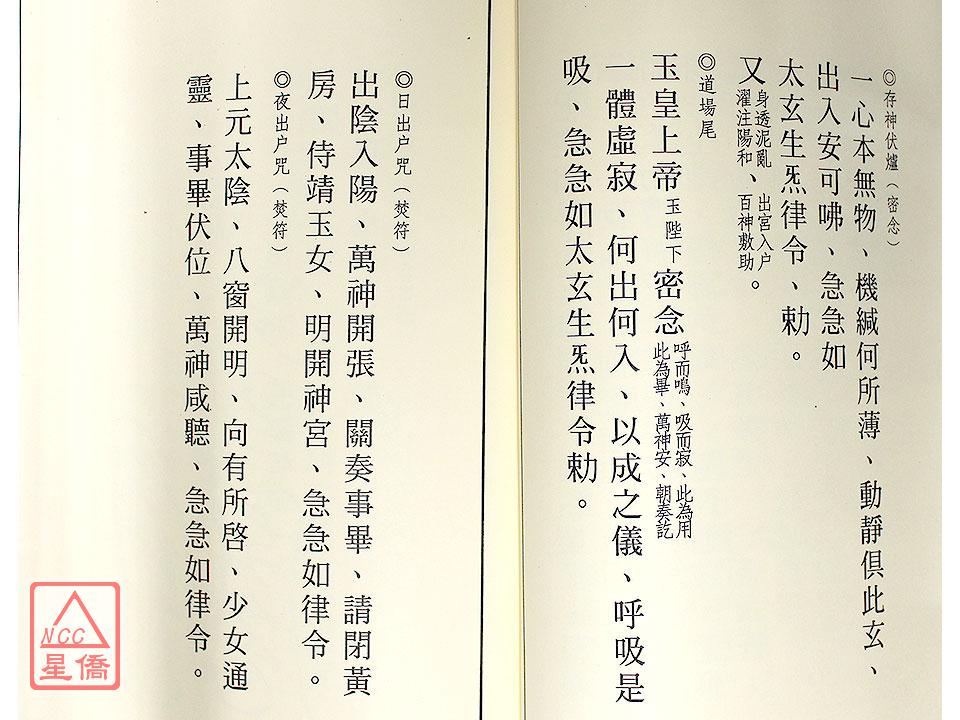 ◎存神伏爐（密念）
一心本無物、機緘何所薄、動靜俱此玄、
出入安可咈、急急如
太玄生炁律令、勅。
又身透泥亂 出宮入户
濯注陽和、百神敷助。
◎道場尾
玉皇上帝玉陛下密念呼而鳴、吸而寂、此為用
此為畢、萬神安、朝奏訖
一體虛寂、何出何入、以成之儀、呼吸是
吸、急急如太玄生炁律令勅。
◎日出户咒（焚符）
出陰入陽、萬神開張、關奏事畢、請閉黃
房、侍靖玉女、明開神宮、急急如律令。
◎夜出户咒（焚符）
上元太陰、八窗開明、向有所啓、少女通
靈、事畢伏位、萬神咸聽、急急如律令。
NCC
星僑